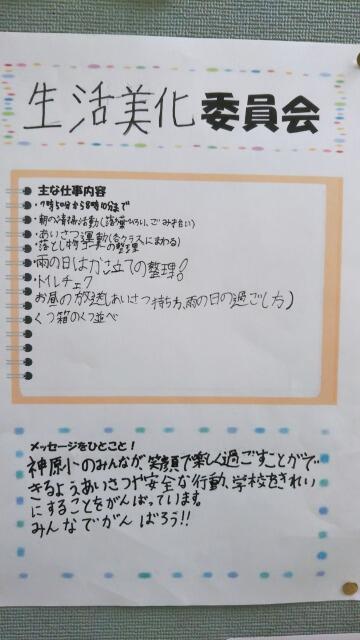 生活美化委員会
主な仕事内容
・7時50分から8時10分まで
・朝の清掃活動(落ち葉ひろい、ごみ拾い)
・あいさつ運動(各クラスにまわる)
・落とし物コーナーの整理
・雨の日はかさ立ての整理!
・トイレチェック
お昼の放送(あいさつ、持ち方、雨の日の過ごし方)
くつ箱のくつ並べ
メッセージをひとこと!
神原小のみんなが笑顔で楽しく過ごすことがで
きるようあいさつや安全な行動、学校をきれい
にすることをがんばっています。
みんなでがんばろう!!